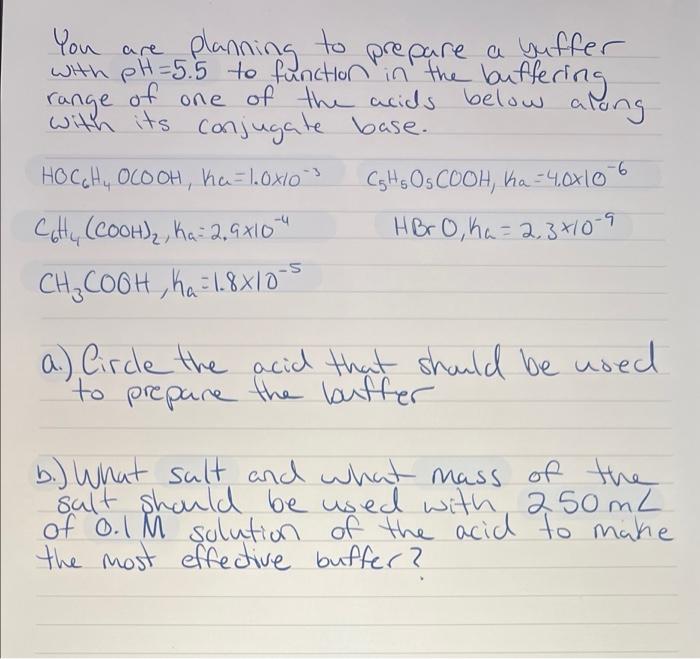 You are planning to prepare a buffer
with pH=5.5 to function in the buffering
range of one of the acids below along
with its conjugate base.
HOC₆H₄OCOOH, Ka=1.0x10⁻³ C₅H₅O₅COOH, Ka=4.0x10⁻⁶
C₆H₄(COOH)₂, Ka=2.9x10⁻⁴ HBrO, Ka=2.3x10⁻⁹
CH₃COOH, Ka=1.8x10⁻⁵
a.) Circle the acid that should be used
to prepare the buffer
b.) What salt and what mass of the
salt should be used with 250mL
of 0.1M solution of the acid to make
the most effective buffer?